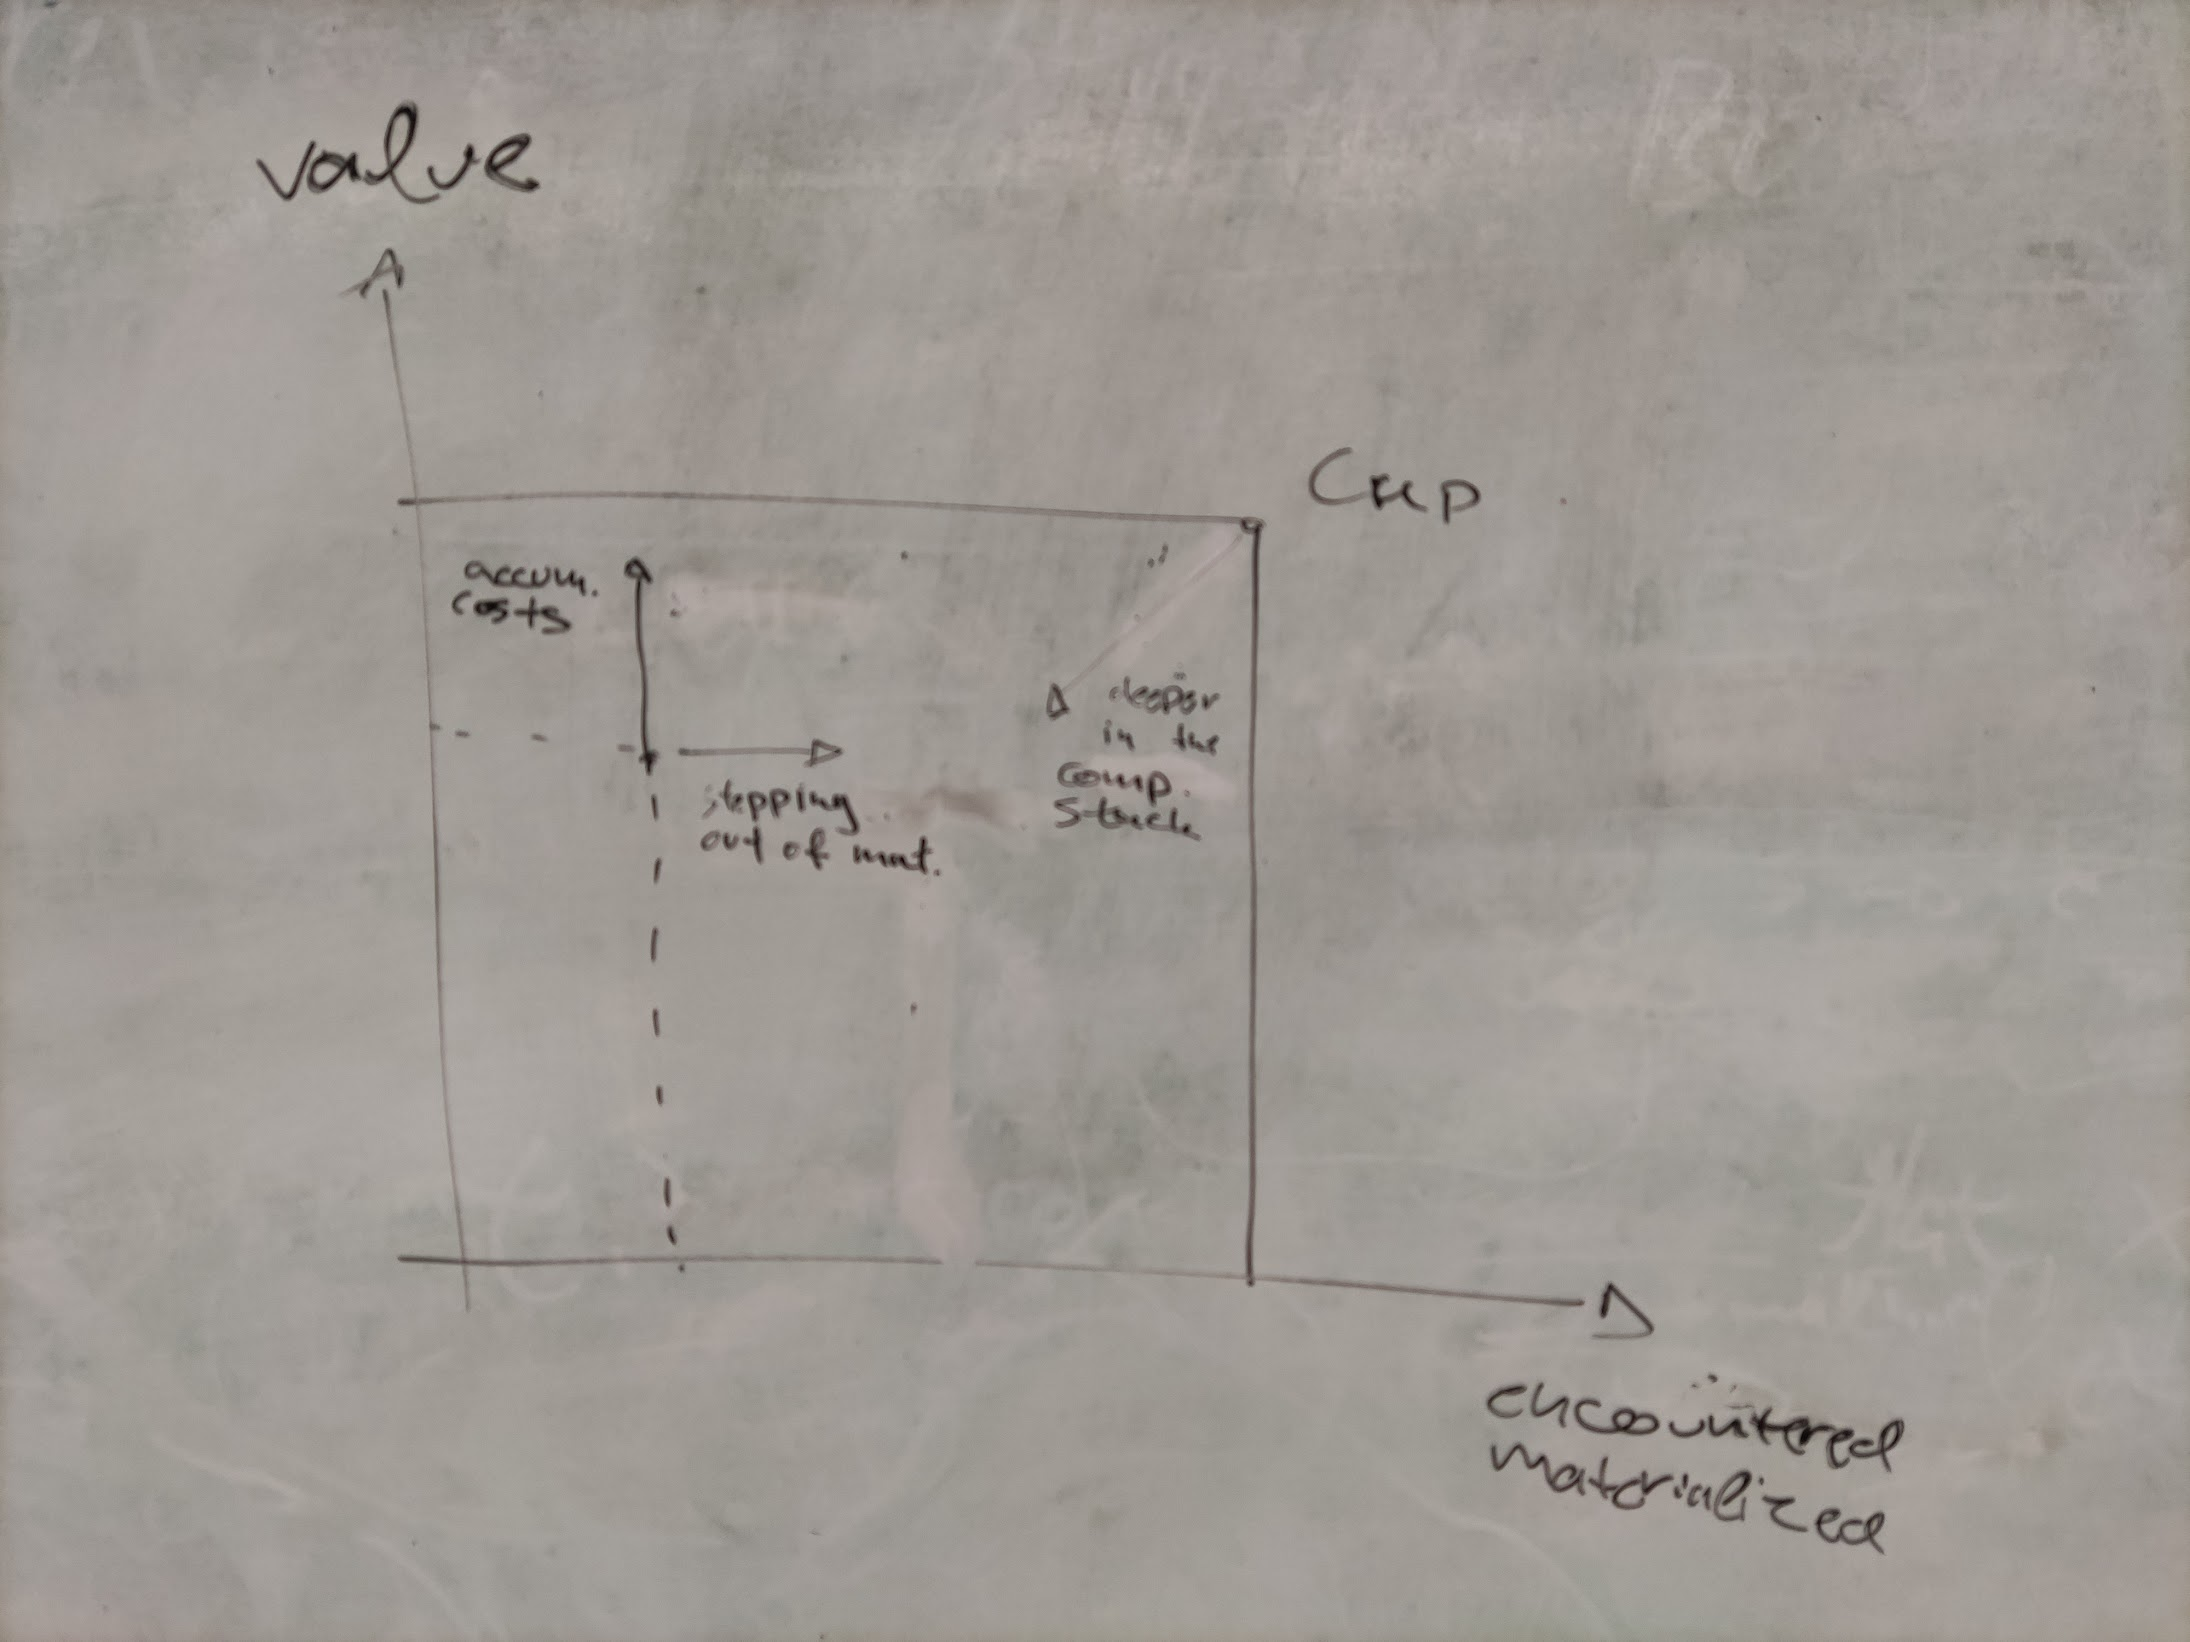 value
Cup
accum.
costs
deeper
in the
comp.
stack
stepping
out of mat.
encountered
materialized